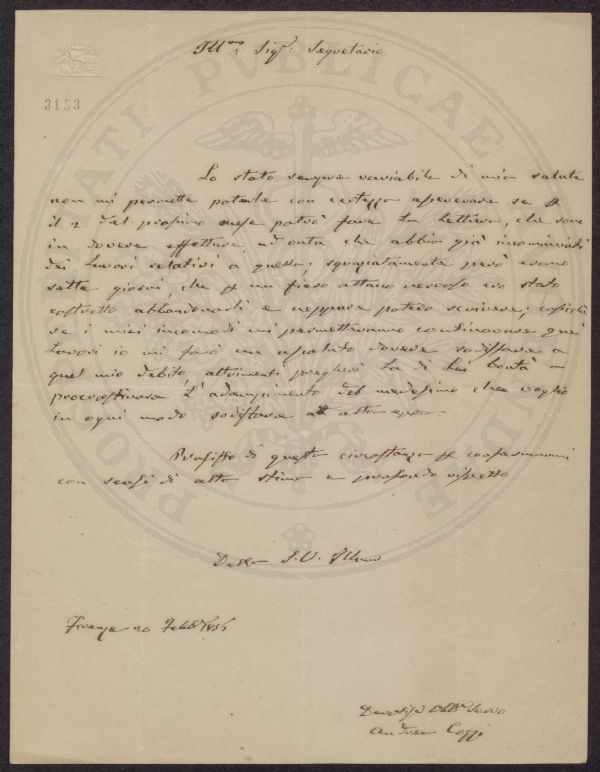 Ill.mo Sig.r Segretario
3153
Lo stato sempre variabile di mia salute
non mi permette poterle con certezza asseverare se
il 2 del prossimo mese potrò fare la Lettura, che sono
in dovere effettuare, ad onta che abbia già incominciati
dei lavori relativi a questa; sgraziatamente però erano
sette giorni, che un fiero attacco nervoso ero stato
costretto abbandonarli e neppure potevo scrivere; cosicchè
se i miei incomodi mi permetteranno continovare quei
lavori io mi farò un assoluto dovere sodisfare a
quel mio debito, altrimenti pregherò la di Lei bontà a
procrastinare l'adempimento del medesimo che voglio
in ogni modo sodisfare altra epoca.
Profitto di questa circostanza confermarmi
con sensi di alta stima e profondo rispetto
Della S.V. Ill.ma
Firenze 20 Febb.
Servo
Andrea Cozzi
PROSPERITATI PUBLICAE